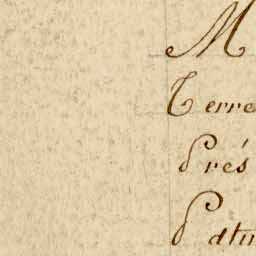 M
Terre
Prés
Patu